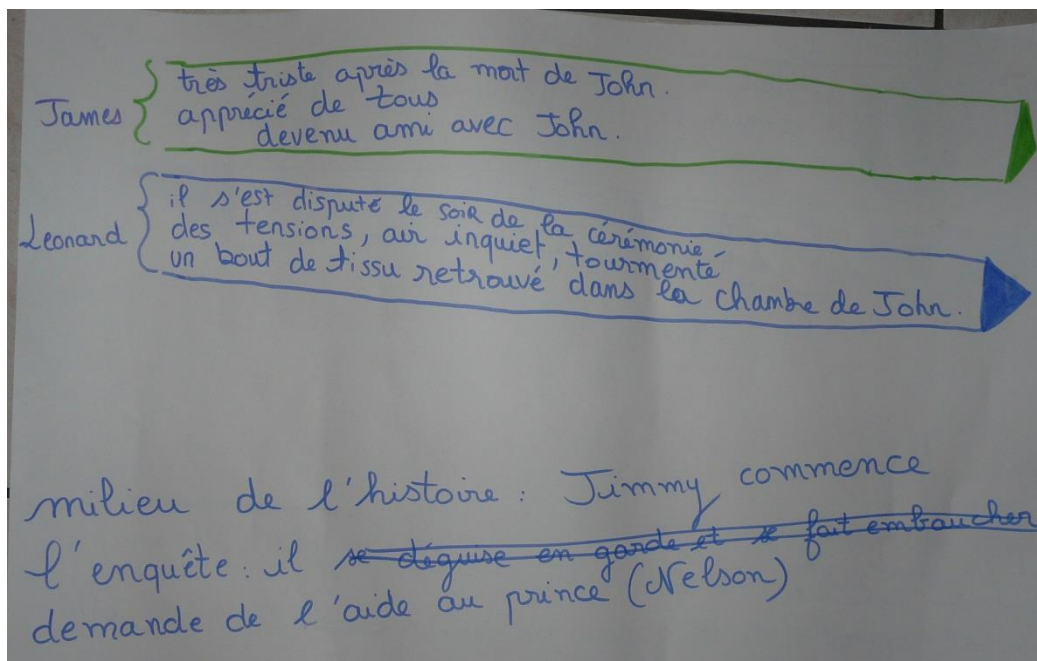 James { très triste après la mort de John.
apprécié de tous
devenu ami avec John.
Leonard { il s'est disputé le soir de la cérémonie
des tensions, air inquiet, tourmenté
un bout de tissu retrouvé dans la chambre de John.
milieu de l'histoire : Jimmy commence
l'enquête : il se déguise en garde et se fait embaucher
demande de l'aide au prince (Nelson)